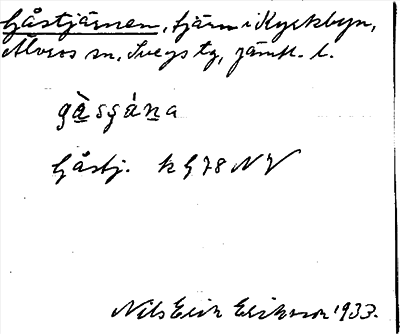 Gåstjärnen, tjärn i Kyrkbyn,
Älvros sn, Svegs tg, Jämtl. l.
gàsgána
Gåstj. k G 78 NV
Nils Erik Eriksson 1933.